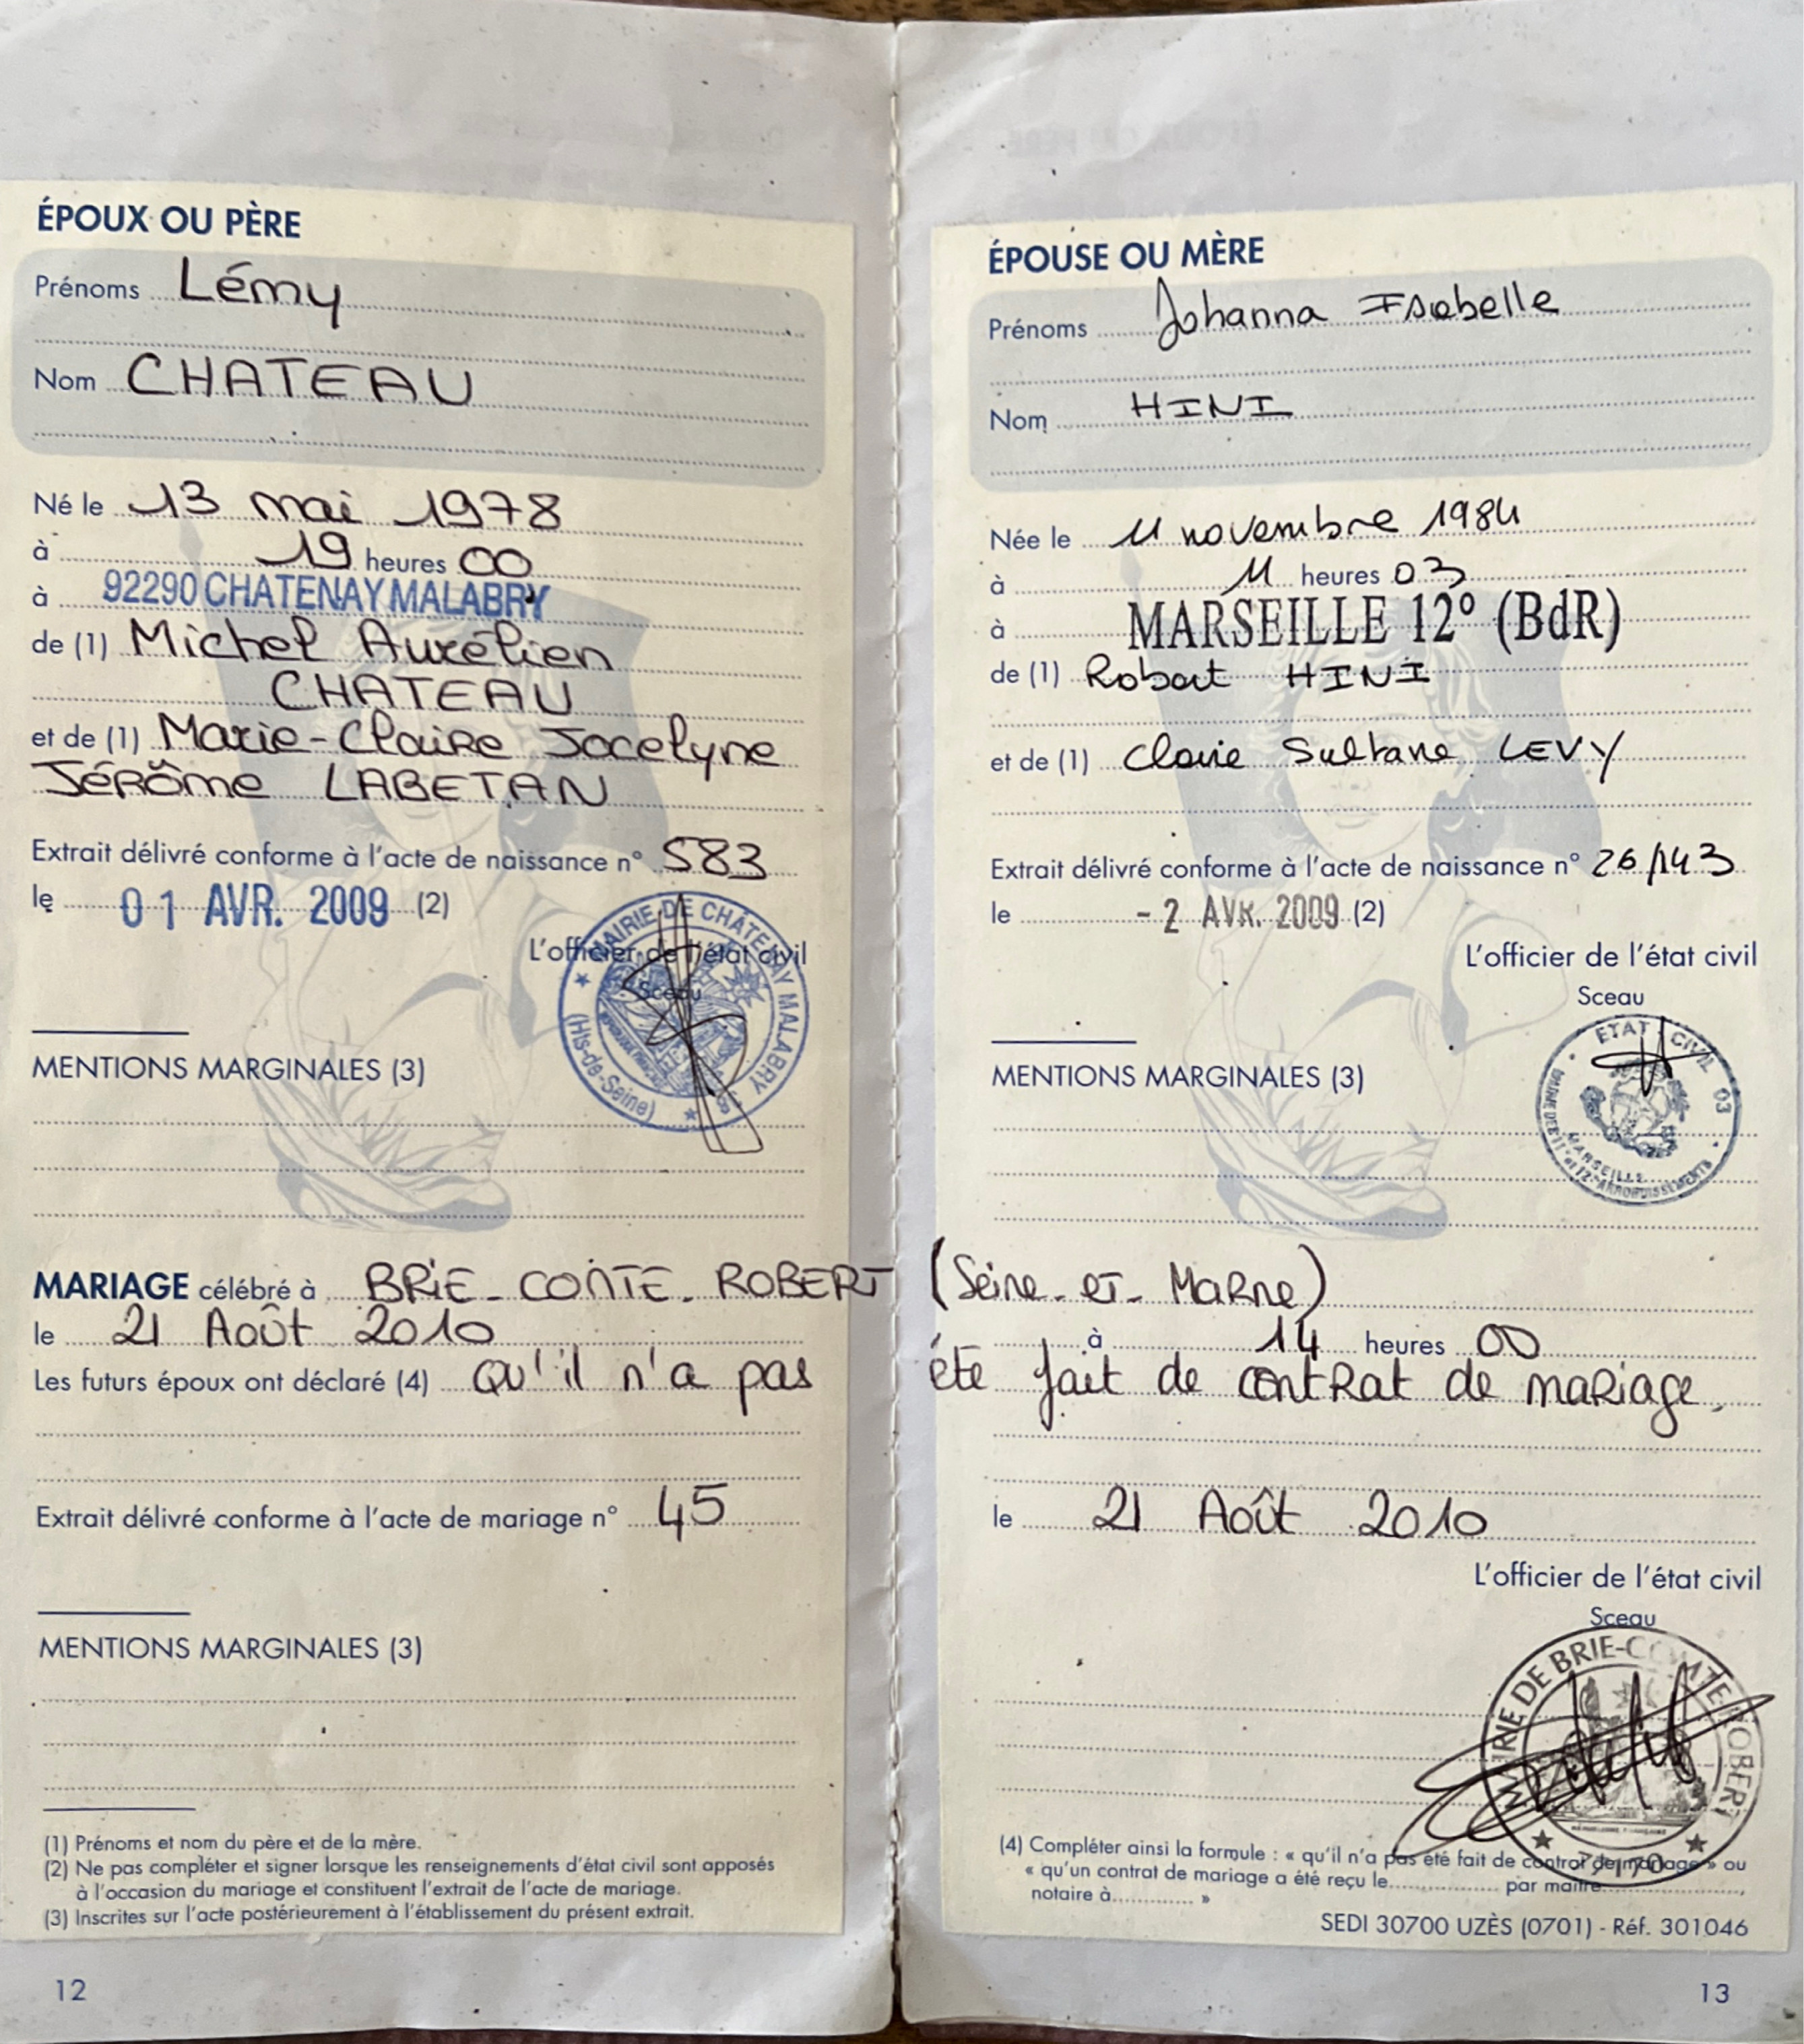 ÉPOUX OU PÈRE
Prénoms Lémy
Nom CHATEAU
Né le 13 mai 1978
à 19 heures 00
à 92290 CHATENAY MALABRY
de (1) Michel Aurélien
CHATEAU
et de (1) Marie-Claire Jocelyne
Jérôme LABETAN
Extrait délivré conforme à l'acte de naissance n° 583
le 01 AVR. 2009 (2)
L'officier de l'état civil
Sceau
MAIRIE DE CHÂTENAY MALABRY
(Hts-de-Seine)
MENTIONS MARGINALES (3)
MARIAGE célébré à BRIE-COMTE-ROBERT
le 21 Août 2010
Les futurs époux ont déclaré (4) qu'il n'a pas
Extrait délivré conforme à l'acte de mariage n° 45
MENTIONS MARGINALES (3)
(1) Prénoms et nom du père et de la mère.
(2) Ne pas compléter et signer lorsque les renseignements d'état civil sont apposés
à l'occasion du mariage et constituent l'extrait de l'acte de mariage.
(3) Inscrites sur l'acte postérieurement à l'établissement du présent extrait.
12
ÉPOUSE OU MÈRE
Prénoms Johanna Isabelle
Nom HINI
Née le 11 novembre 1984
à 11 heures 03
à MARSEILLE 12° (BdR)
de (1) Robert HINI
et de (1) Claire Sultane LEVY
Extrait délivré conforme à l'acte de naissance n° 26/143
le - 2 AVR. 2009 (2)
L'officier de l'état civil
Sceau
ETAT CIVIL 03
MARSEILLE
MENTIONS MARGINALES (3)
(Seine-et-Marne)
à 14 heures 00
été fait de contrat de mariage.
le 21 Août 2010
L'officier de l'état civil
Sceau
MAIRIE DE BRIE-COMTE-ROBERT
77170
(4) Compléter ainsi la formule : « qu'il n'a pas été fait de contrat de mariage » ou
« qu'un contrat de mariage a été reçu le par maître
notaire à »
SEDI 30700 UZÈS (0701) - Réf. 301046
13